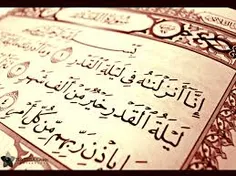 إِنَّا أَنزَلْنَٰهُ فِى لَيْلَةِ ٱلْقَدْرِ
لَيْلَةُ ٱلْقَدْرِ خَيْرٌ مِّنْ أَلْفِ شَهْرٍ
بِإِذْنِ رَبِّهِم مِّن كُلِّ أَمْرٍ